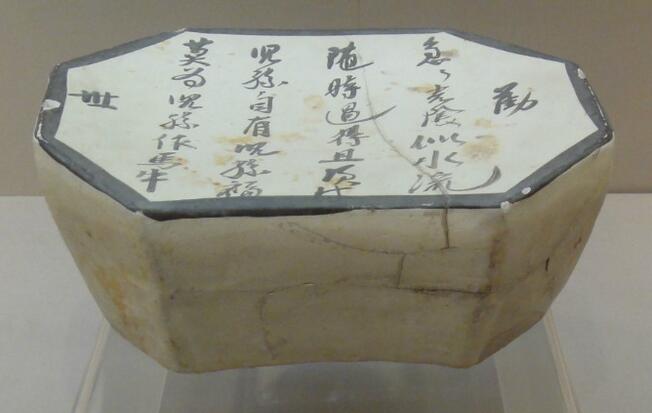 勸
急々光陰似水流
隨時過得且
兒孫自有兒孫福
莫为兒孫作馬牛
世